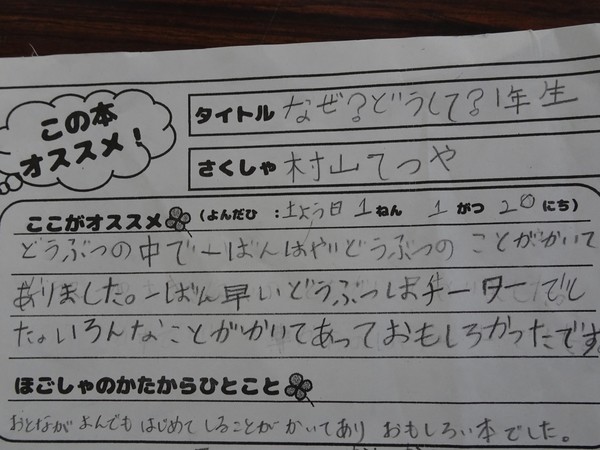 この本
オススメ!
タイトル なぜ?どうして?1年生
さくしゃ 村山てつや
ここがオススメ (よんだひ :土よう日 1 ねん 1 がつ 20 にち)
どうぶつの中で一ばんはやいどうぶつの ことがかいて
ありました。一ばん早いどうぶつはチーターでし
た。いろんなことがかいてあっておもしろかったです
ほごしゃのかたからひとこと
おとなが よんでも はじめて しることが かいてあり おもしろい本でした。